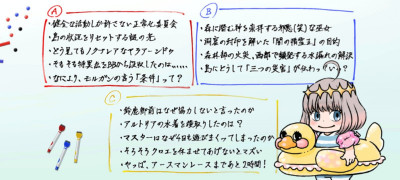 A
・健全な活動しか許さない正常化委員会
・島の水辺をリセットする銀の光
・どう見てもノクナレアなヤラアーンドゥ
・そもそも特異点をBBから設収したのは……
・なにより、モルガンの言う「条件」って？
B
・森に潜む神を崇拝する邪悪(笑)な巫女
・洞窟の封印を解いた「闇の精霊王」の目的
・森林部の火災、西部で頻発する水漏れの解決
・島にとって「三つの災害」が伝わっ
C
・鈴鹿御前はなぜ協力しないと言ったのか
・アルトリアの水着を横取りしたのは？
・マスターはなぜ4日も遊びまくってしまったのか
・そろそろクロエを休ませてあげないとマズい
・やっば、アースマンレースまであと2時間！